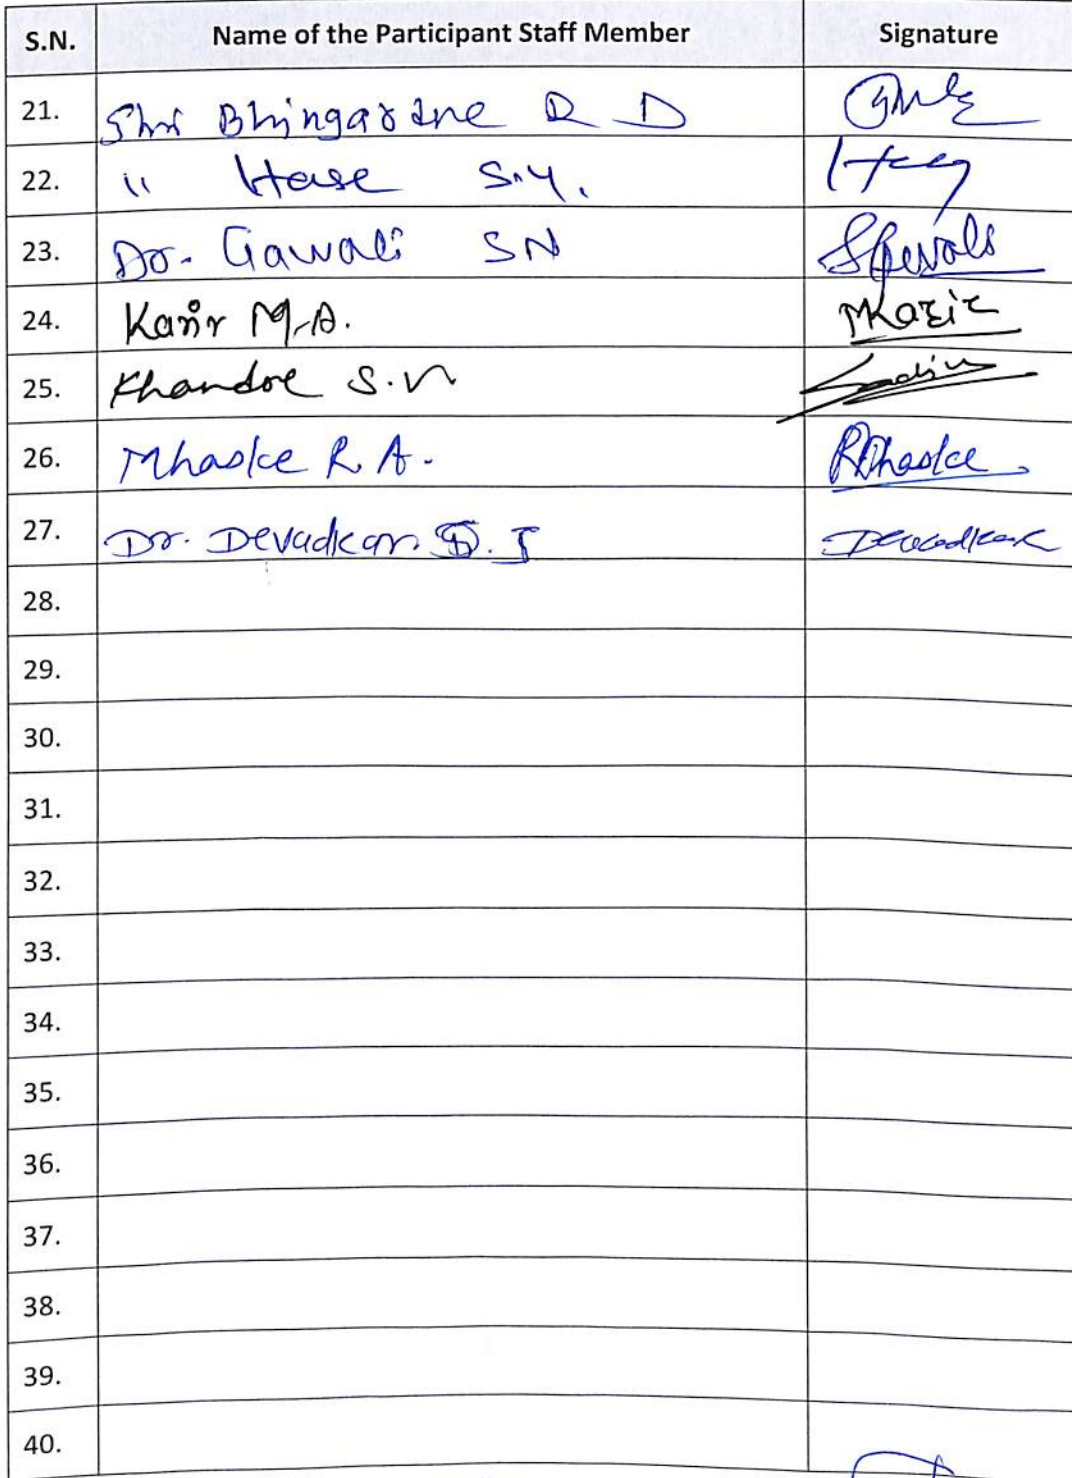 S.N. Name of the Participant Staff Member Signature
21. Shri Bhingardive R D
22. " Hase S.Y.
23. Dr. Gawali SN
24. Kazir M.A. MKazir
25. Khandre S.N
26. Mhaske R.A. RMhaske
27. Dr. Devadkar D. J Devadkar
28.
29.
30.
31.
32.
33.
34.
35.
36.
37.
38.
39.
40.